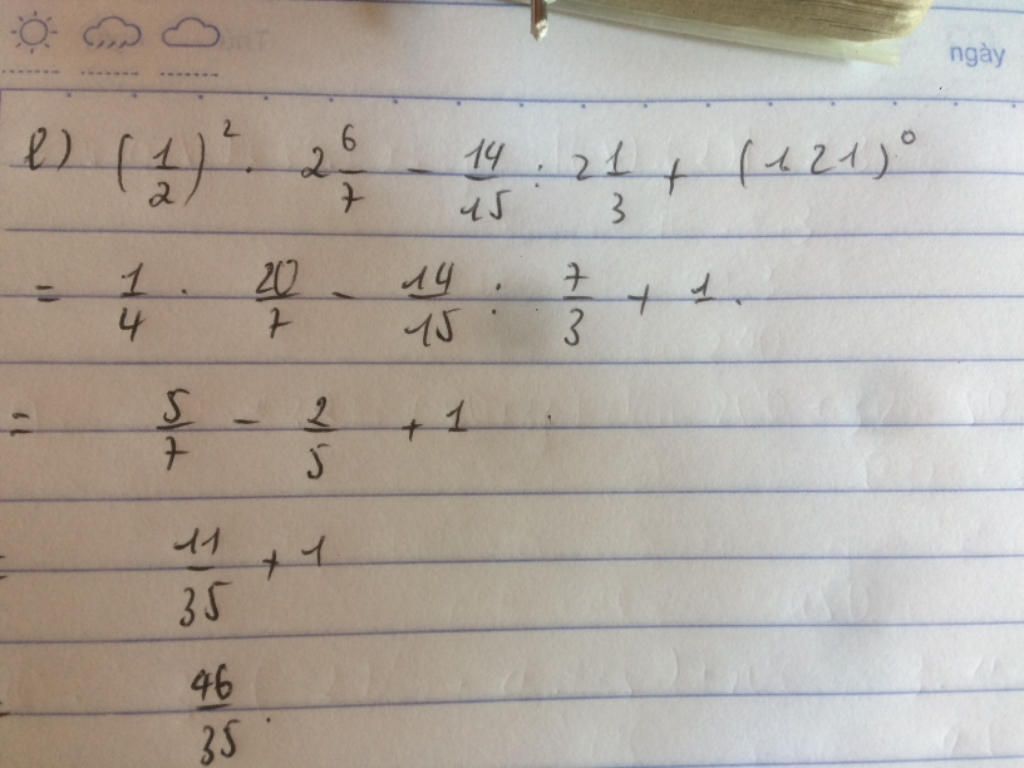 ngày
l) (1/2)² . 2 6/7 - 14/15 : 2 1/3 + (121)⁰
= 1/4 . 20/7 - 14/15 : 7/3 + 1.
= 5/7 - 2/5 + 1
= 11/35 + 1
= 46/35.